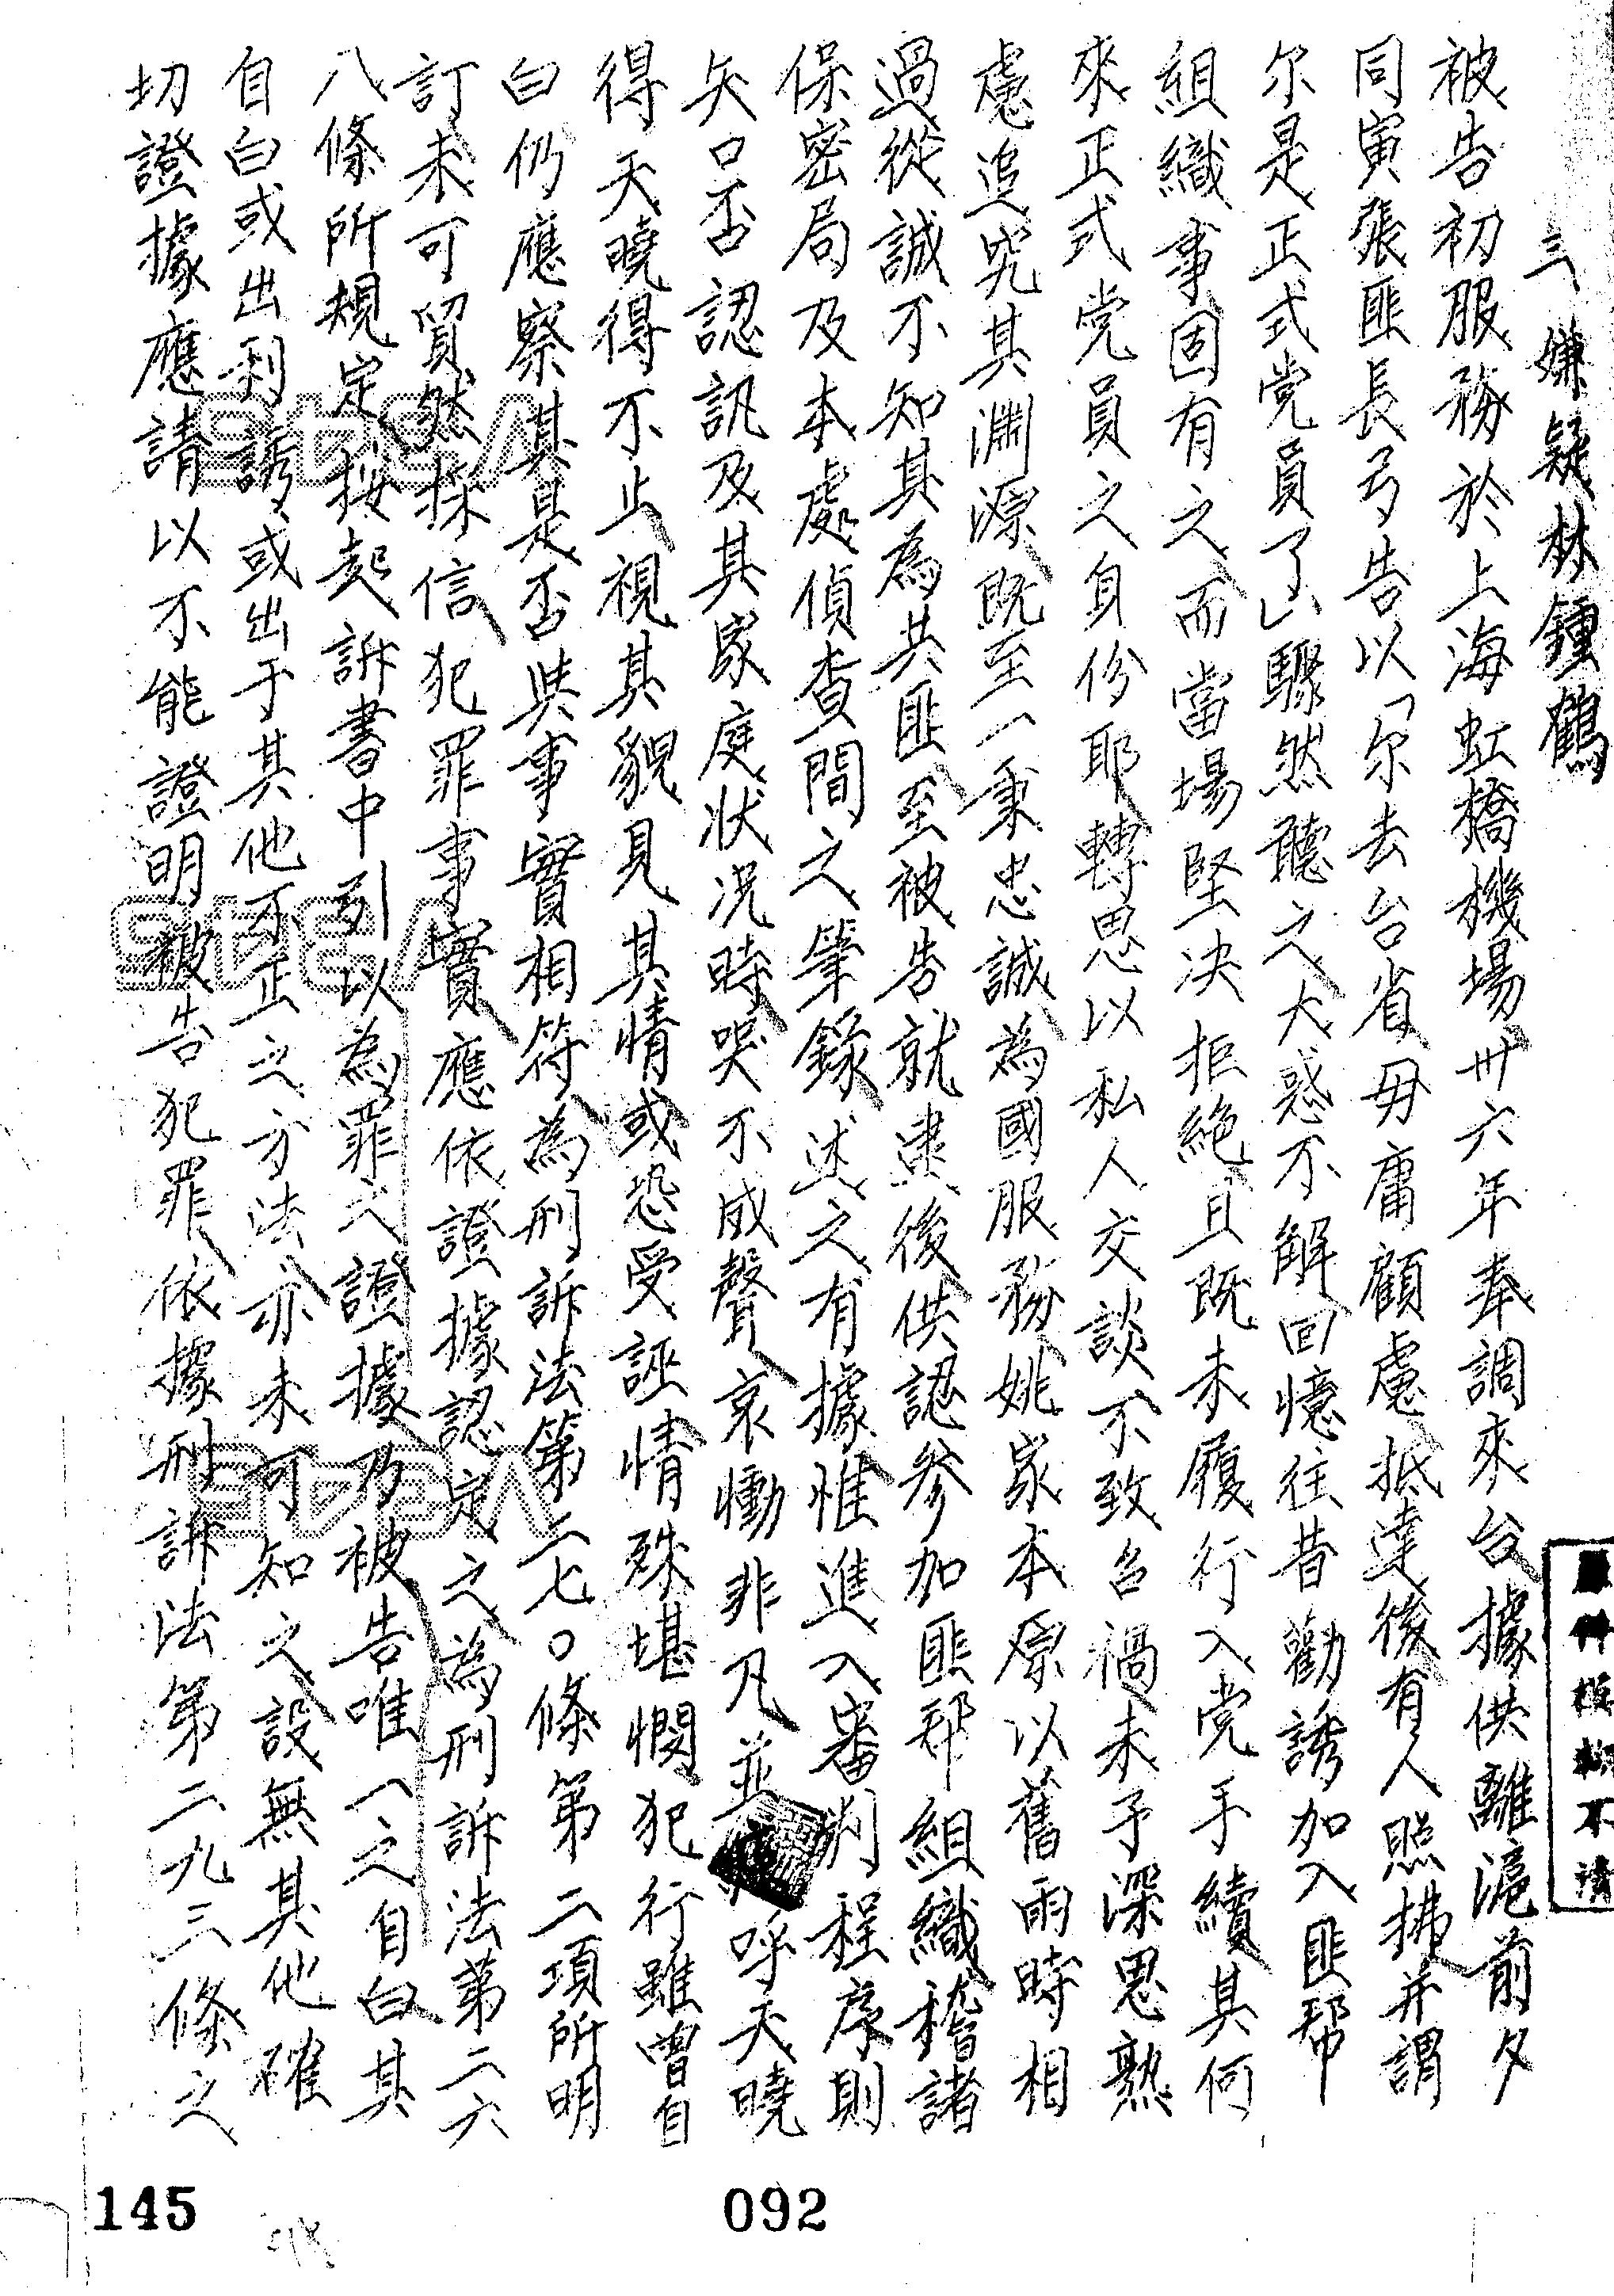 三、嫌疑林鍾鶴
被告初服務於上海虹橋機場卅六年奉調來台據供離滬前夕
同寅張匪長弓告以「尔去台省毋庸顧慮抵達後有人照拂并謂
尔是正式党員了」驟然聽之大惑不解回憶往昔勸誘加入匪幇
組織事固有之而當場堅决拒絶且既未履行入党手續其何
來正式党員之身份耶轉思以私人交談不致召禍未予深思熟
慮追究其淵源既至一秉忠誠為國服務姚家本原以舊雨時相
過從誠不知其為共匪至被告就逮後供認參加匪帮組織稽諸
保密局及本處偵查間之筆錄述之有據惟進入審判程序則
矢口否認訊及其家庭状况時哭不成聲哀慟非凡並呼天曉
得天曉得不止視其貌見其情或恐受誣情殊堪憫犯行雖曾自
白仍應察其是否與事實相符為刑訴法第二七〇條第二項所明
訂未可貿然採信犯罪事實應依證據認定之為刑訴法第二六
八條所規定按起訴書中引以為罪之證據乃被告唯一之自白其
自白或出利誘或出于其他不正之方法亦未可知之設無其他確
切證據應請以不能證明被告犯罪依據刑訴法第二九三條之
本件模糊不清
145
092